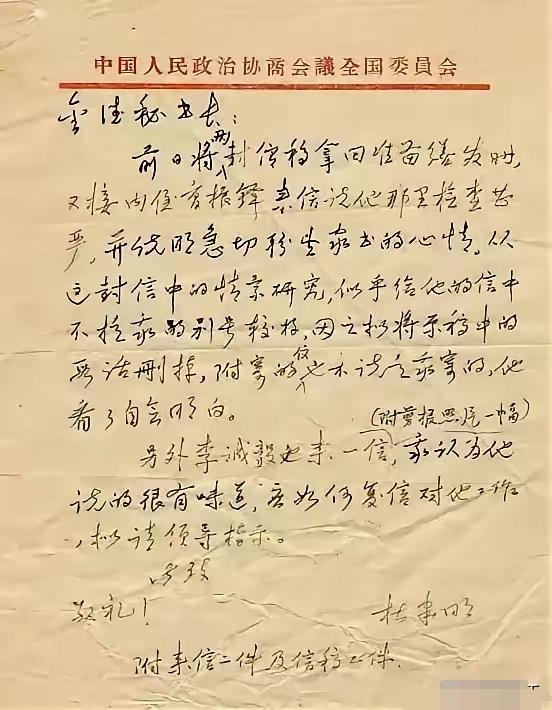 中国人民政治协商会議全国委員会
金德秘书长：
前日将两封信稿拿回准备缮发时，
又接内侄曹振铎来信说他那里检查甚
严，并说明急切盼告家书的心情。从
这封信中的情景研究，似乎给他的信中
不提我的别号较好，因之拟将原稿中的
两话删掉，附寄的信也不说是我寄的，他
看了自会明白。
（附剪报照片一幅）
另外李诚毅也来一信，我认为他
说的很有味道，应如何复信对他工作
，拟请领导指示。
此致
敬礼！ 杜聿明
附来信二件及信稿二件.